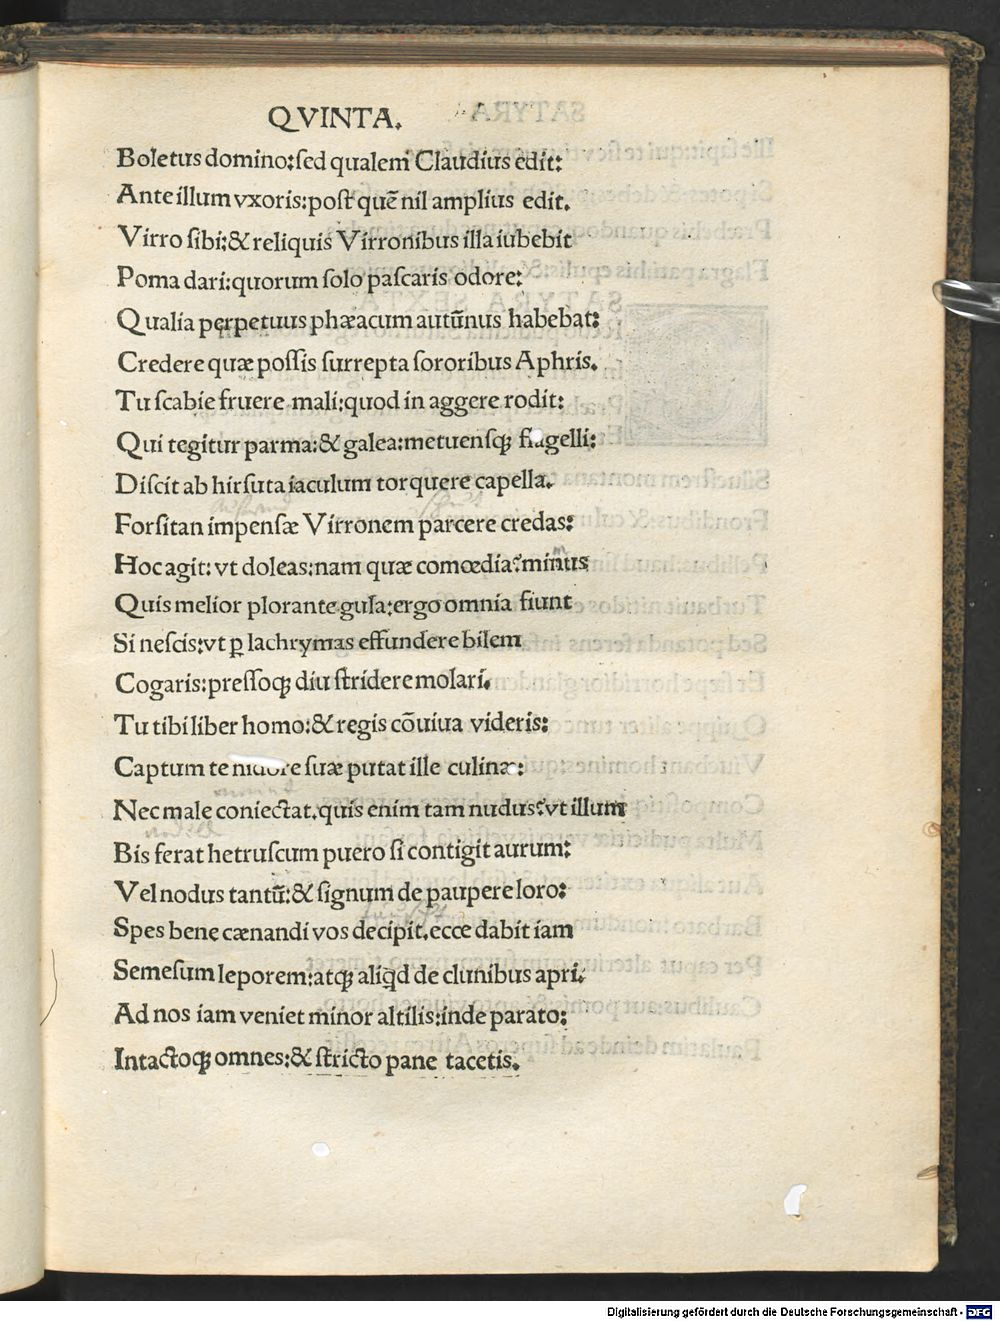 QVINTA.
Boletus domino:sed qualem Claudius edit:
Ante illum vxoris:post quē nil amplius edit.
Virro sibi:& reliquis Virronibus illa iubebit
Poma dari:quorum solo pascaris odore:
Qualia perpetuus phæacum autūnus habebat:
Credere quæ possis surrepta sororibus Aphris.
Tu scabie fruere mali:quod in aggere rodit:
Qui tegitur parma:& galea:metuensqꝫ flagelli:
Discit ab hirsuta iaculum torquere capella.
Forsitan impensæ Virronem parcere credas:
Hoc agit: vt doleas:nam quæ comœdia?minus
Quis melior plorante gula:ergo omnia fiunt
Si nescis:vt ꝑ lachrymas effundere bilem
Cogaris:pressoqꝫ diu stridere molari.
Tu tibi liber homo:& regis cōuiua videris:
Captum te nidore suæ putat ille culinæ:
Nec male coniectat.quis enim tam nudus?vt illum
Bis ferat hetruscum puero si contigit aurum:
Vel nodus tantū:& signum de paupere loro:
Spes bene cænandi vos decipit.ecce dabit iam
Semesum leporem:atqꝫ aliqd de clunibus apri.
Ad nos iam veniet minor altilis:inde parato:
Intactoqꝫ omnes:& stricto pane tacetis.
Digitalisierung gefördert durch die Deutsche Forschungsgemeinschaft - DFG